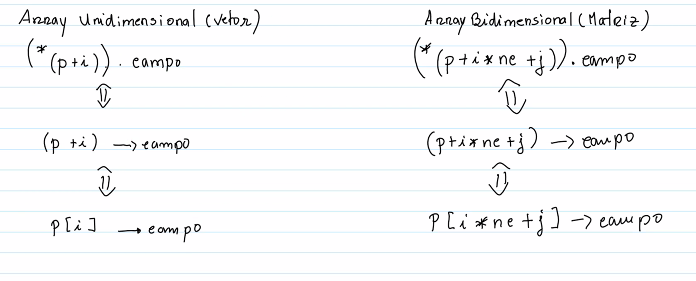 Array Unidimensional (vetor)
(*(p+i)).campo
⇕
(p+i) → campo
⇕
P[i] → campo
Array Bidimensional (Matriz)
(*(p+i*nc+j)).campo
⇕
(p+i*nc+j) → campo
⇕
P[i*nc+j] → campo